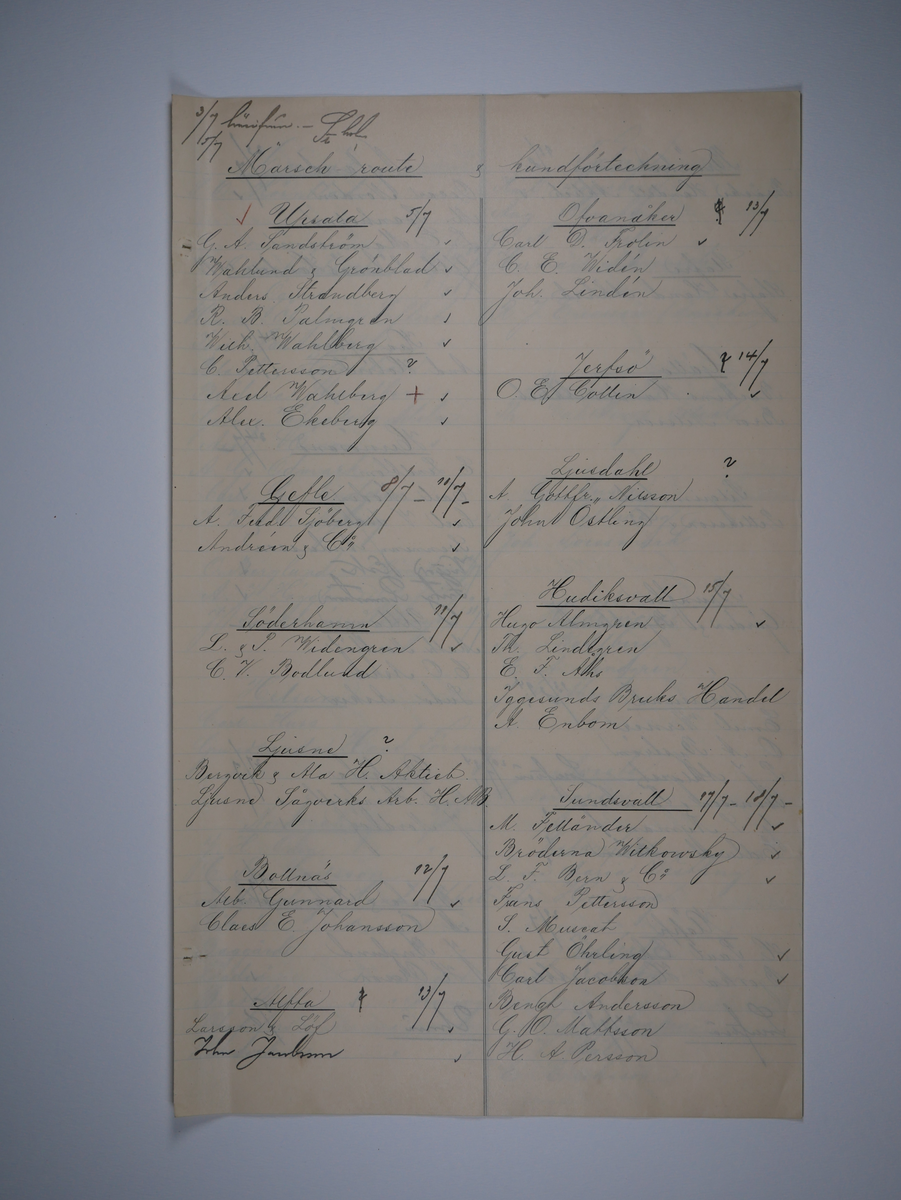 3/7
5/7
Marsch route & kundförteckning
Upsala 5/7
G. A. Sandström
Wahlund & Grönblad
Anders Strandberg
R. B. Palmgren
Wilh. Wahlberg
C. Pettersson ?
Axel Wahlberg +
Alex. Ekeberg
Gefle 8/7 - 10/7 -
A. Ferd. Sjöberg
Andréen & Co
Söderhamn 11/7
L. & P. Widengren
C. V. Bodlund
Ljusne ?
Bergvik & Ala H. Aktieb.
Ljusne Sågverks Arb. H. AB.
Bollnäs 12/7
Alb. Gunnard
Claes E. Johansson
Alfta 13/7
Larsson & Löf
John
Ofvanåker 13/7
Carl D. Frolin
C. E. Widén
Joh. Lindén
Jerfsö 14/7
O. E. Collin
Ljusdahl ?
A. Gottfr. Nilsson
John Östling
Hudiksvall 15/7
Hugo Almgren
Th. Lindtgren
E. F. Åhs
Iggesunds Bruks Handel
A. Enbom
Sundsvall 17/7 - 18/7 -
M. Felländer
Bröderna Wilkowsky
L. F. Bern & Co
Frans Pettersson
S. Muscat
Gust Öhrling
Carl Jacobson
Bengt Andersson
G. O. Mattsson
H. A. Persson